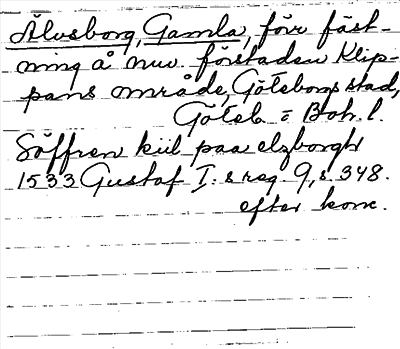 Älvsborg, Gamla, förr fäst-
ning å nuv. förstaden Klip-
pans område, Göteborgs stad,
Göteb. = Boh. l.
Söffren kiil paa elzborgh
1533 Gustaf I:s reg. 9, s. 348.
efter konc.